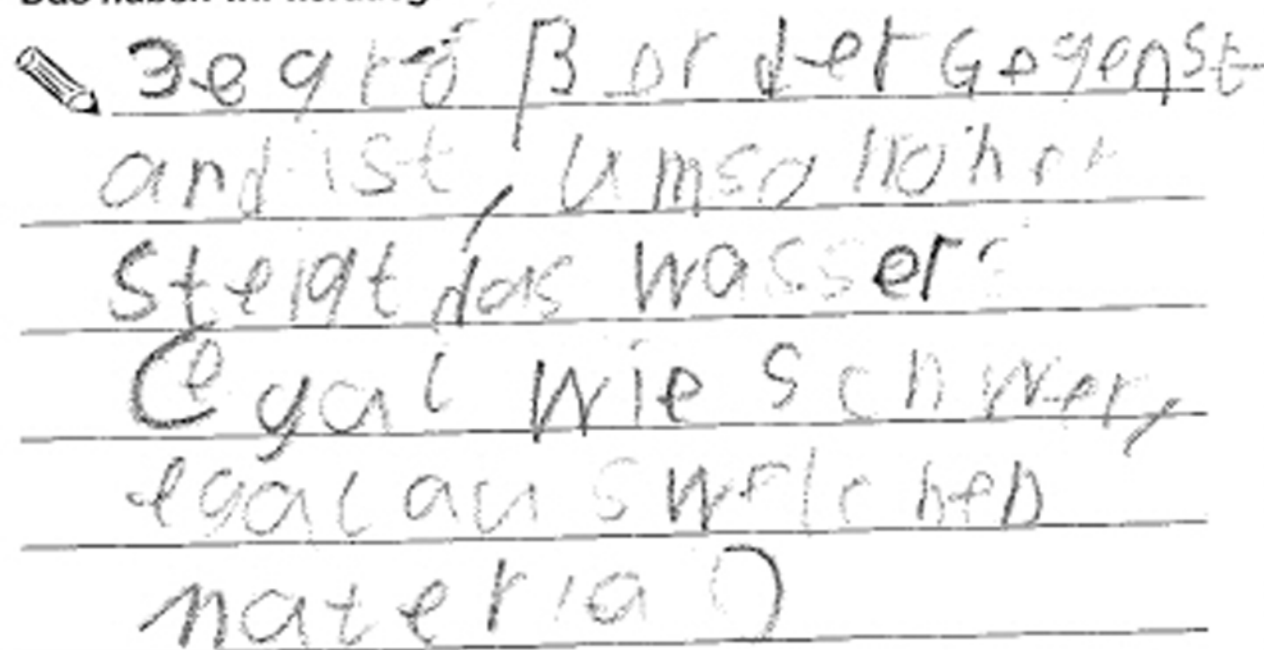 Je größer der Gegenst-
and ist, umso höher
steigt das wasser
egal wie schwer,
egal aus welchen
material